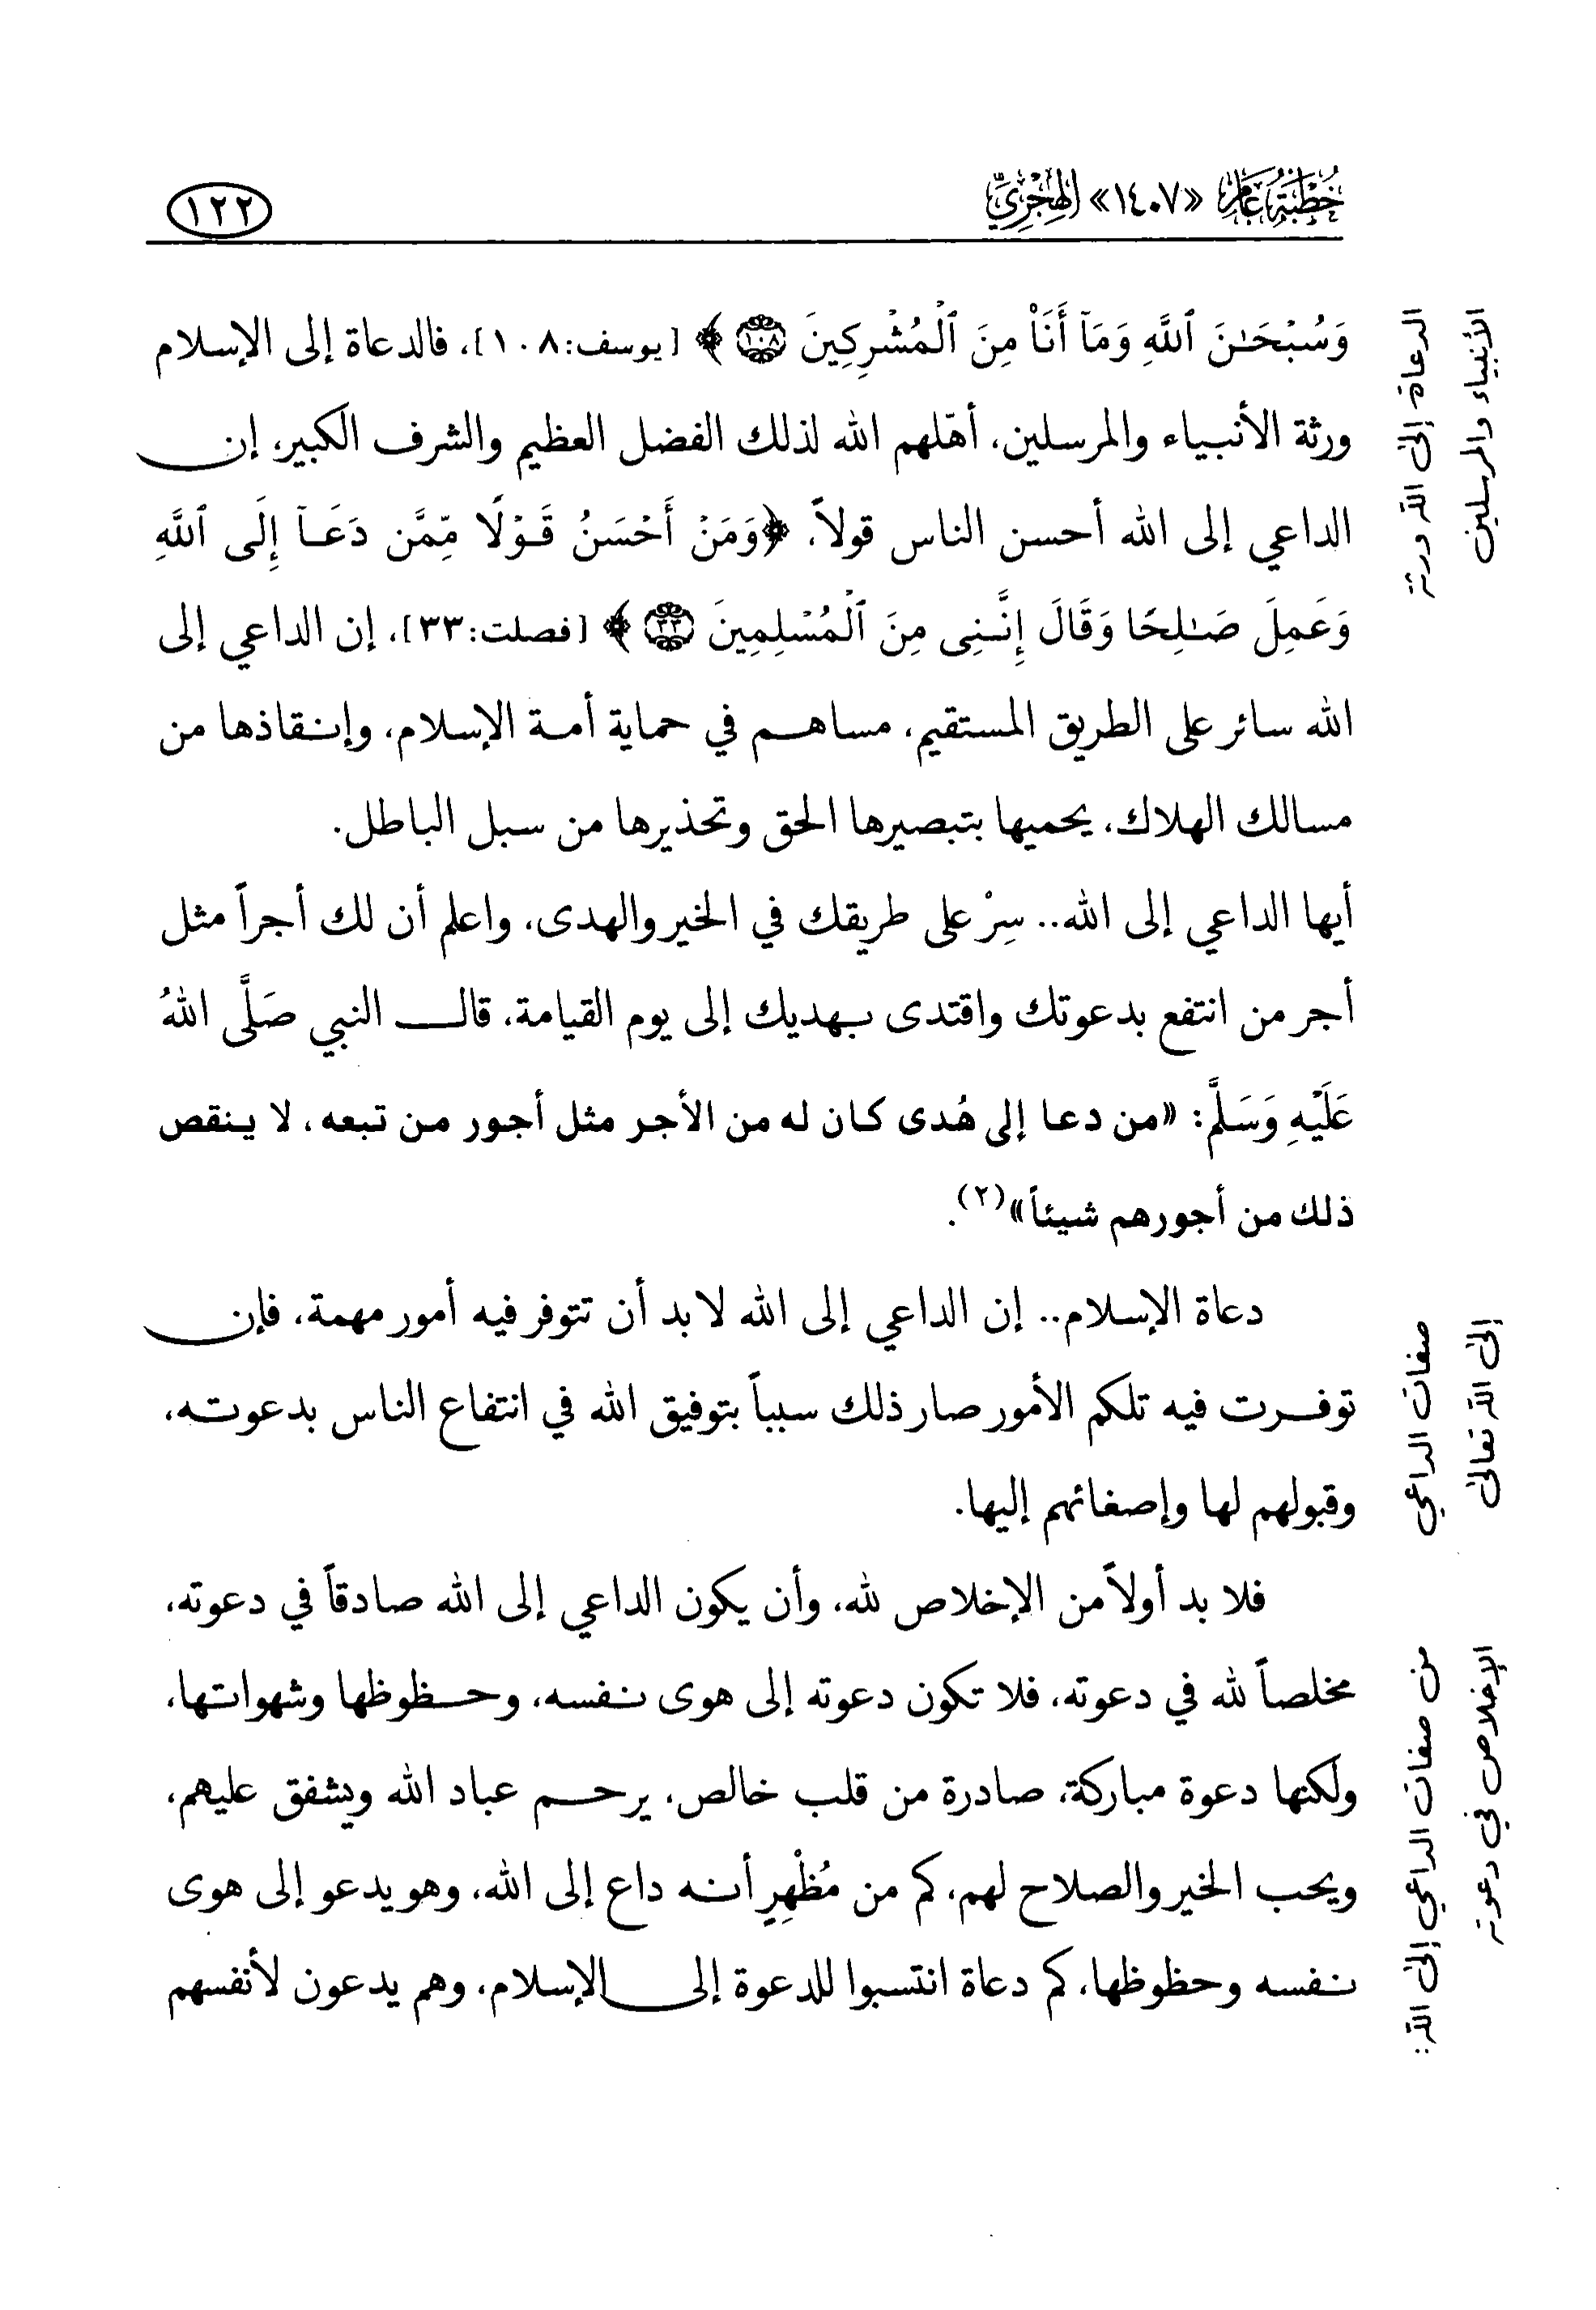 خُطْبَةُ عَام «١٤٠٧» الهِجْرِيِّ
١٢٢
وَسُبْحَـٰنَ ٱللَّهِ وَمَآ أَنَا۠ مِنَ ٱلْمُشْرِكِينَ ١٠٨ ﴾ [يوسف:١٠٨]، فالدعاة إلى الإسلام
ورثة الأنبياء والمرسلين، أهّلهم الله لذلك الفضل العظيم والشرف الكبير، إن
الداعي إلى الله أحسن الناس قولاً، ﴿وَمَنْ أَحْسَنُ قَوْلًا مِّمَّن دَعَآ إِلَى ٱللَّهِ
وَعَمِلَ صَـٰلِحًا وَقَالَ إِنَّنِى مِنَ ٱلْمُسْلِمِينَ ٣٣ ﴾ [فصلت:٣٣]، إن الداعي إلى
الله سائر على الطريق المستقيم، مساهم في حماية أمة الإسلام، وإنقاذها من
مسالك الهلاك، يحميها بتبصيرها الحق وتحذيرها من سبل الباطل.
أيها الداعي إلى الله.. سِرْ على طريقك في الخير والهدى، واعلم أن لك أجراً مثل
أجر من انتفع بدعوتك واقتدى بهديك إلى يوم القيامة، قال النبي صَلَّى اللهُ
عَلَيْهِ وَسَلَّم: «من دعا إلى هُدى كان له من الأجر مثل أجور من تبعه، لا ينقص
ذلك من أجورهم شيئاً»(٢).
دعاة الإسلام.. إن الداعي إلى الله لا بد أن تتوفر فيه أمور مهمة، فإن
توفرت فيه تلكم الأمور صار ذلك سبباً بتوفيق الله في انتفاع الناس بدعوته،
وقبولهم لها وإصغائهم إليها.
فلا بد أولاً من الإخلاص لله، وأن يكون الداعي إلى الله صادقاً في دعوته،
مخلصاً لله في دعوته، فلا تكون دعوته إلى هوى نفسه، وحظوظها وشهواتها،
ولكنها دعوة مباركة، صادرة من قلب خالص، يرحم عباد الله ويشفق عليهم،
ويحب الخير والصلاح لهم، كم من مُظْهِرٍ أنه داع إلى الله، وهو يدعو إلى هوى
نفسه وحظوظها، كم دعاة انتسبوا للدعوة إلى الإسلام، وهم يدعون لأنفسهم
الدعاة إلى الله ورثة
الأنبياء والمرسلين
صفات الداعي
إلى الله تعالى
من صفات الداعي إلى الله:
الإخلاص في دعوته